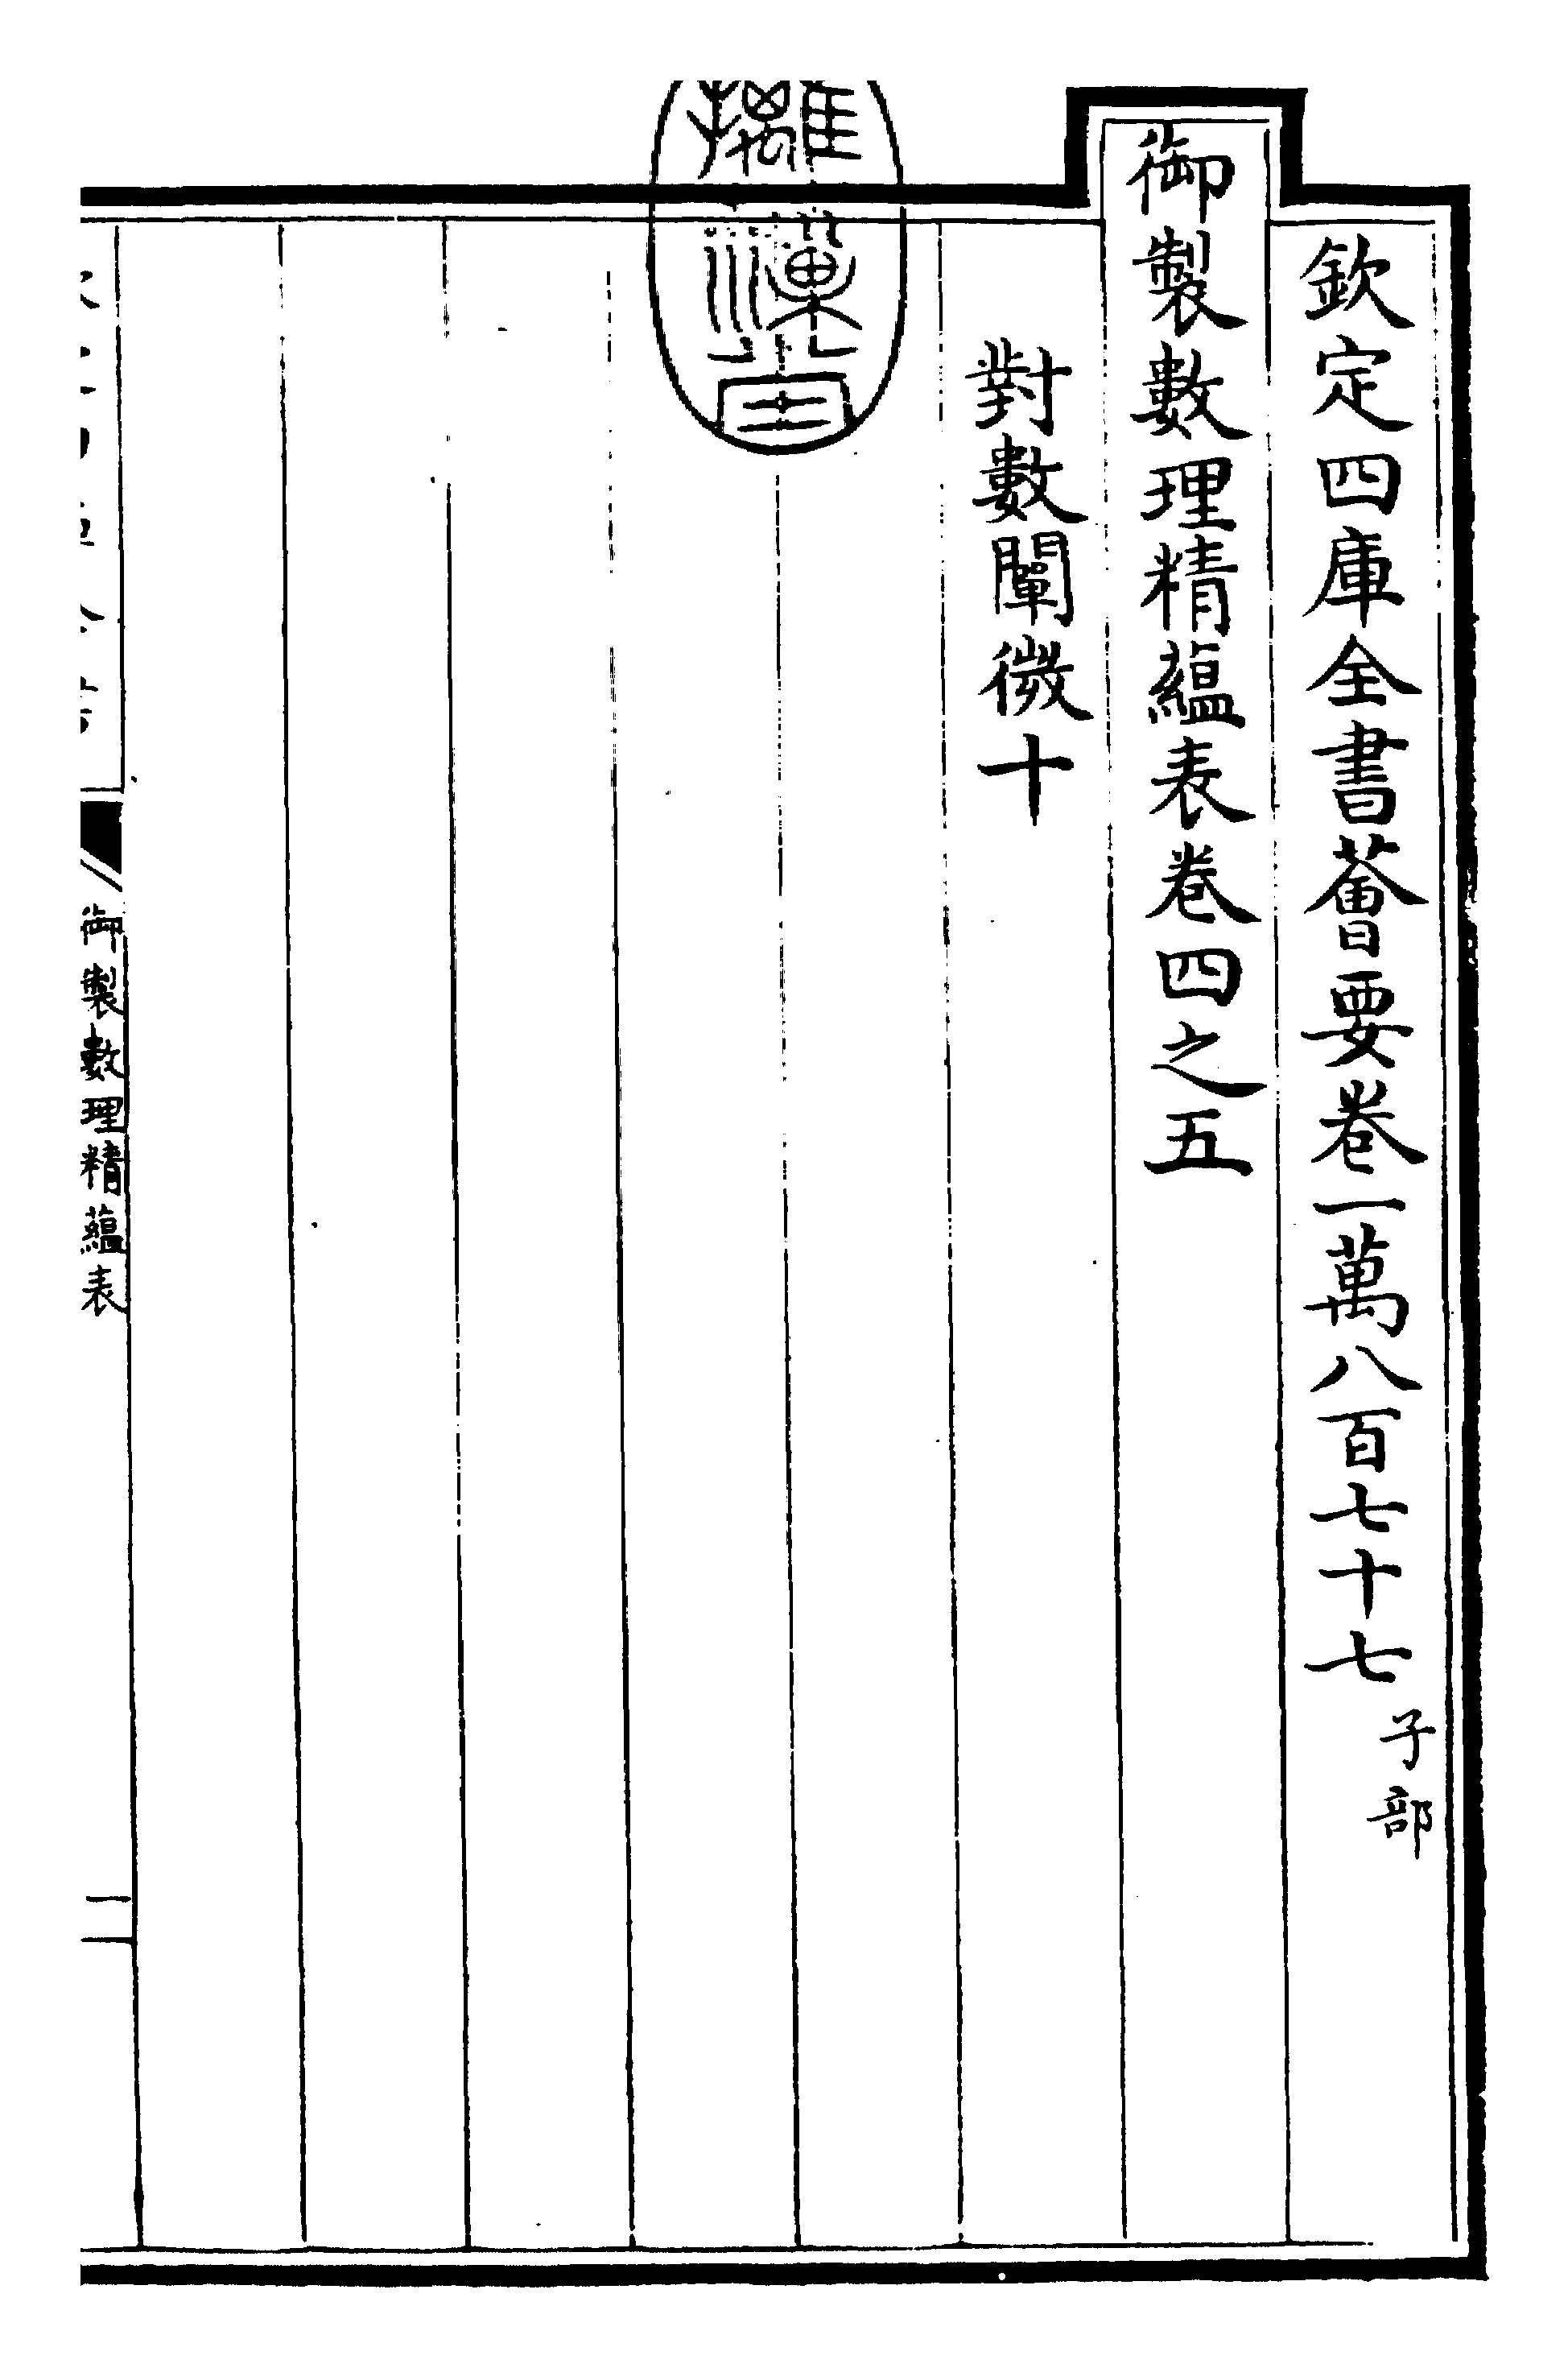 欽定四庫全書薈要卷一萬八百七十七子部
御製數理精蘊表卷四之五
對數闡微十
御製數理精蘊表
一